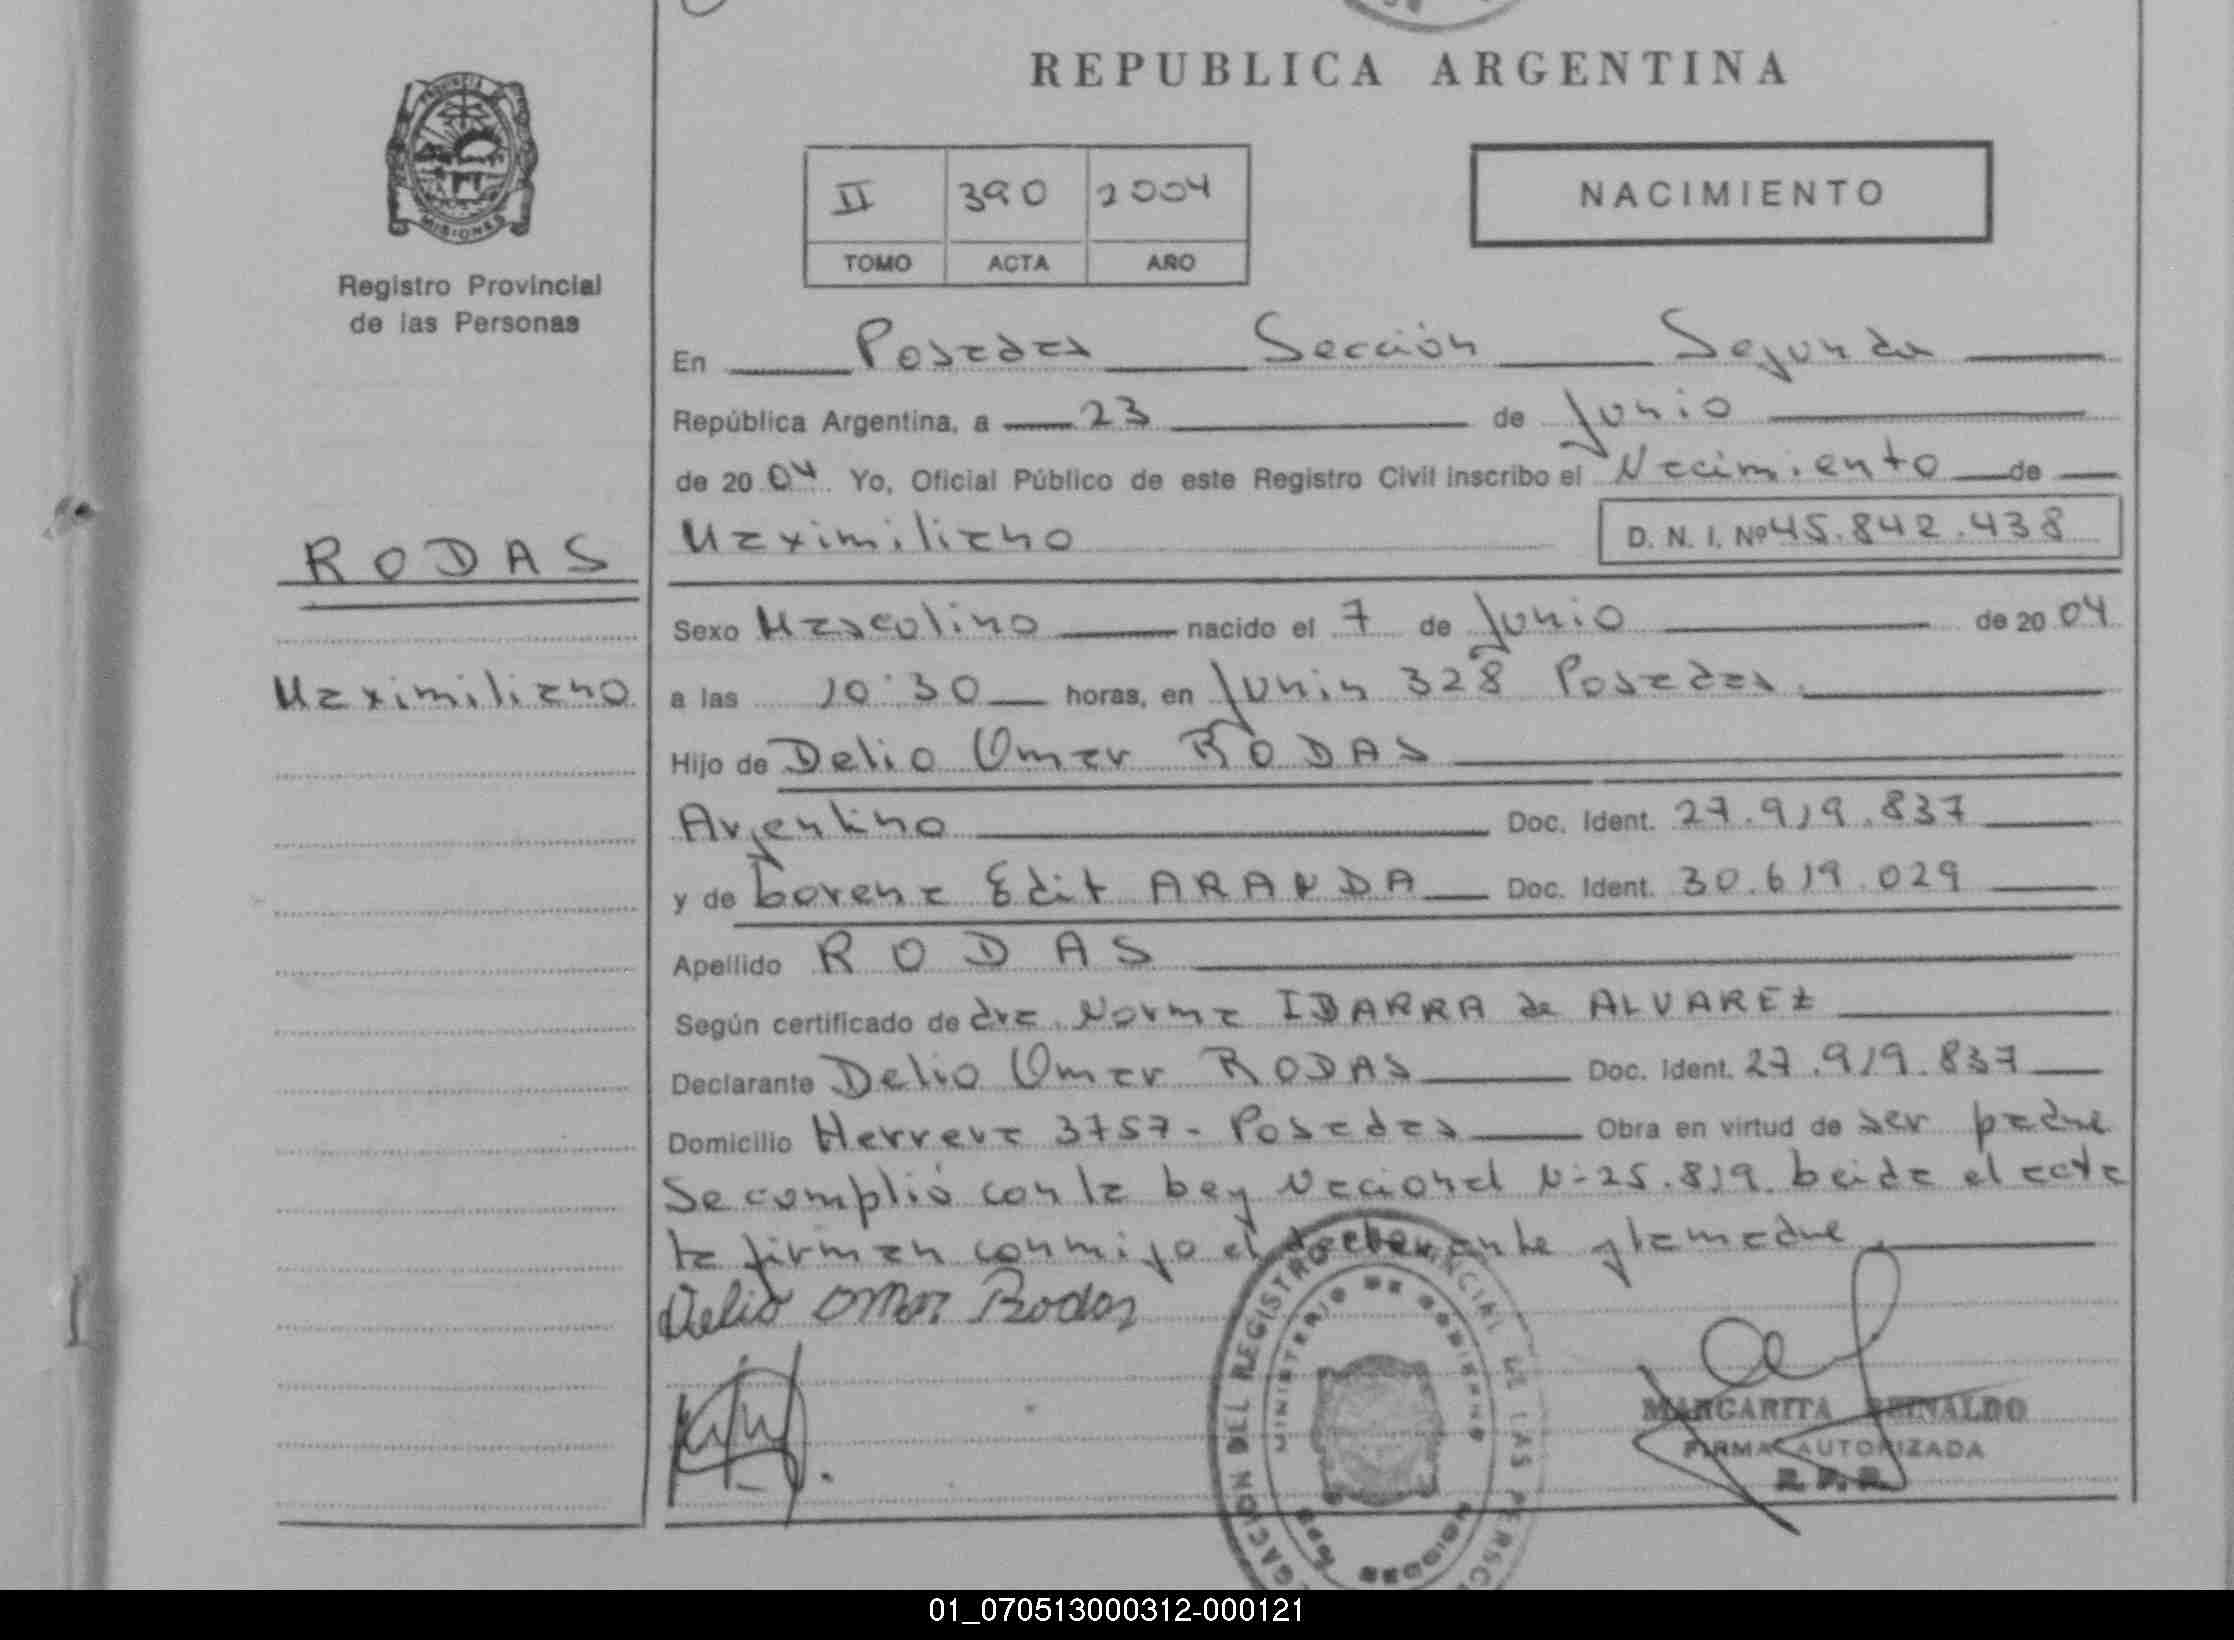 REPUBLICA ARGENTINA
PROVINCIA
MISIONES
Registro Provincial
de las Personas
II 390 2004
TOMO ACTA AÑO
NACIMIENTO
En Posadas Sección Segunda
República Argentina, a 23 de Junio
de 2004 Yo, Oficial Público de este Registro Civil inscribo el Nacimiento de
Maximiliano D. N. I. Nº 45.842.438
RODAS
Maximiliano
Sexo Masculino nacido el 7 de Junio de 2004
a las 10:30 horas, en Junin 328 Posadas.
Hijo de Delio Omar RODAS
Argentino Doc. Ident. 27.919.837
y de Lorena Edit ARANDA Doc. Ident. 30.619.029
Apellido RODAS
Según certificado de dra. Norma IBARRA de ALVAREZ
Declarante Delio Omar RODAS Doc. Ident. 27.919.837
Domicilio Herrera 3757 - Posadas Obra en virtud de ser padre
Se complió con la Ley Nacional N: 25.819. Leida el acta
la firman conmigo el declarante y la madre.
Delio Omar Rodas
DEL REGISTRO PROVINCIAL DE LAS
MINISTERIO DE GOBIERNO
MISIONES
MARGARITA REINALDO
FIRMA AUTORIZADA
R.P.P.
01_070513000312-000121